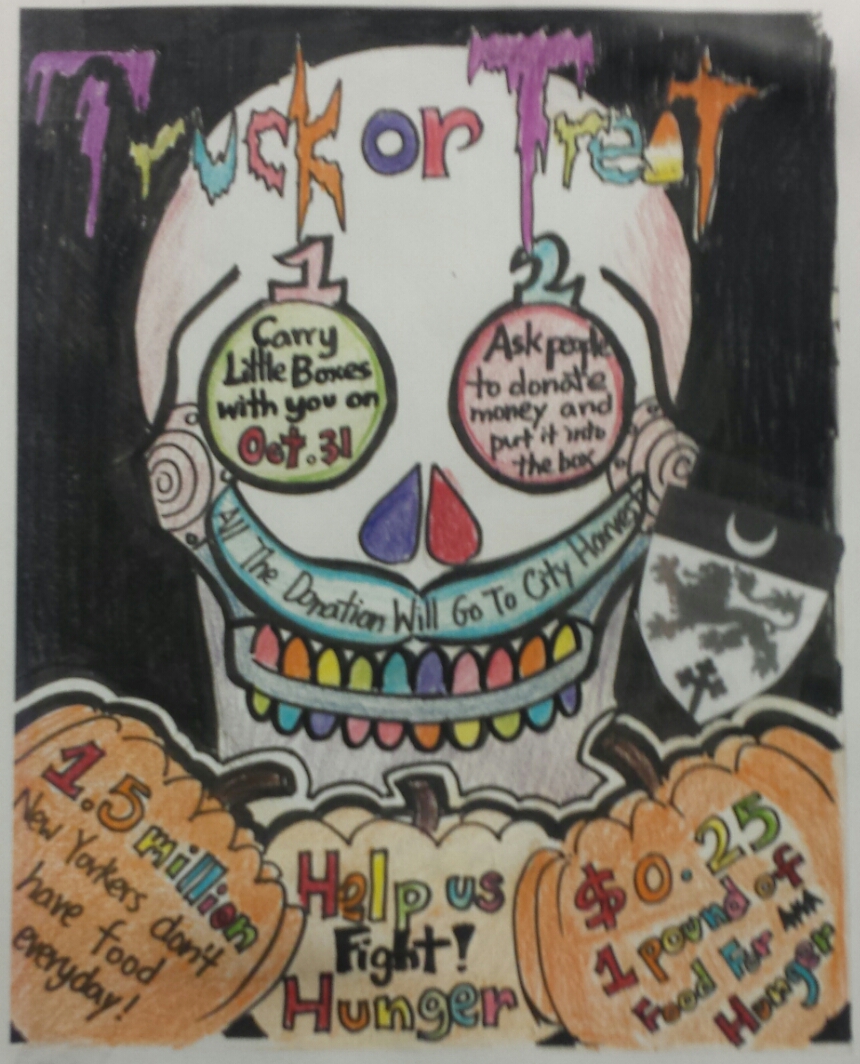 Truck or Treat
1
Carry
Little Boxes
with you on
Oct. 31
2
Ask people
to donate
money and
put it into
the box
All The Donation Will Go To City Harvest
1.5 million
New Yorkers don't
have food
everyday!
Help us
Fight!
Hunger
$0.25
1 pound of
Food For
Hunger